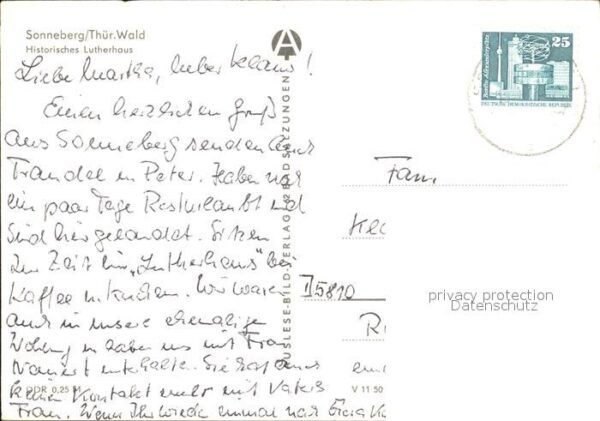 Sonneberg/Thür.Wald
Historisches Lutherhaus
Liebe Martha, lieber Klaus!
Einen herzlichen Gruß
aus Sonneberg senden Euch
Traudel u. Peter. Haben noch
ein paar Tage Resturlaub u. sind
hier gelandet. Sitzen
zur Zeit im "Lutherhaus" bei
Kaffee u. Kuchen. Wir waren
auch in unsere ehemalige
Wohnung u. haben uns mit Frau
unterhalten. Sie hat auch
keinen Kontakt mehr mit Vaters
Frau. Wenn Ihr wieder einmal nach
DDR 0,25 M
V 11 50
AUSLESE-BILD-VERLAG 582 BAD SALZUNGEN
25
DEUTSCHE DEMOKRATISCHE REPUBLIK
Fam
5810
privacy protection
Datenschutz